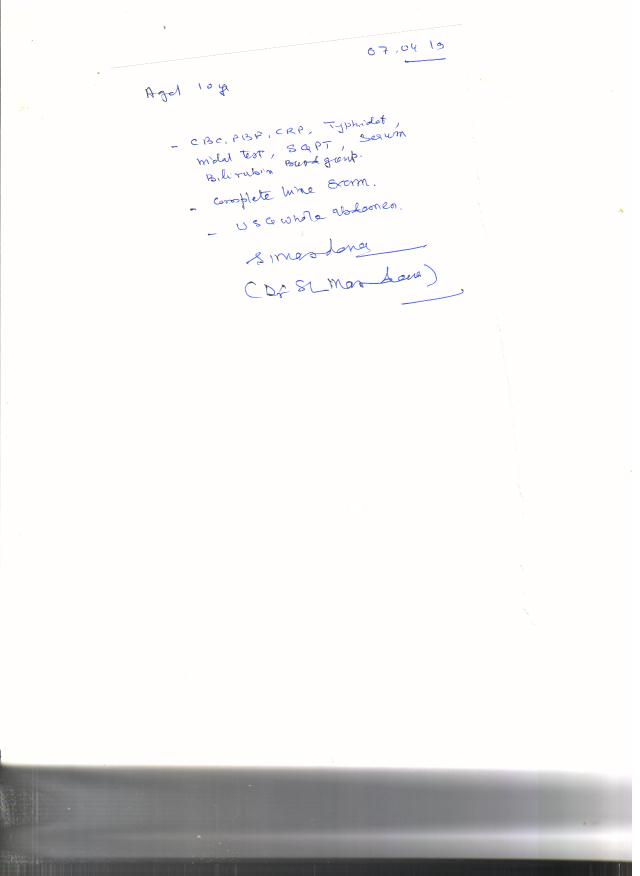 07.04 19
Aged 10 yr
- CBC, PBF, CRP, Typhidot,
widal Test, SGPT, Serum
Bilirubin Blood group.
- Complete Urine Exam.
- USG whole abdomen.
(Dr SL